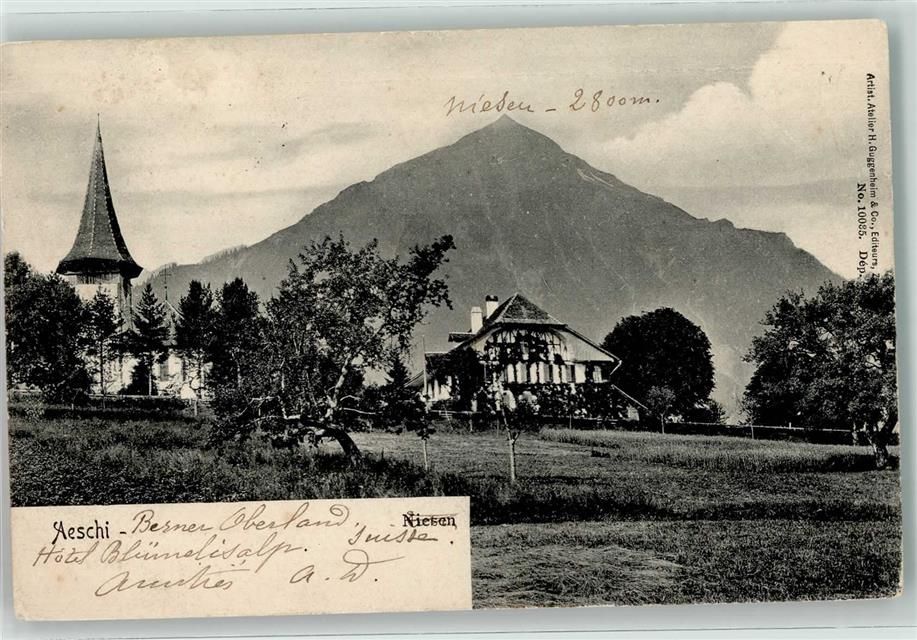 Niesen - 2800 m.
Artist. Atelier H. Guggenheim & Co., Editeurs, Z
No. 10085. Dép.
Aeschi - Berner Oberland, Niesen
Suisse.
Hôtel Blümelisalp.
Amitiés A. D.